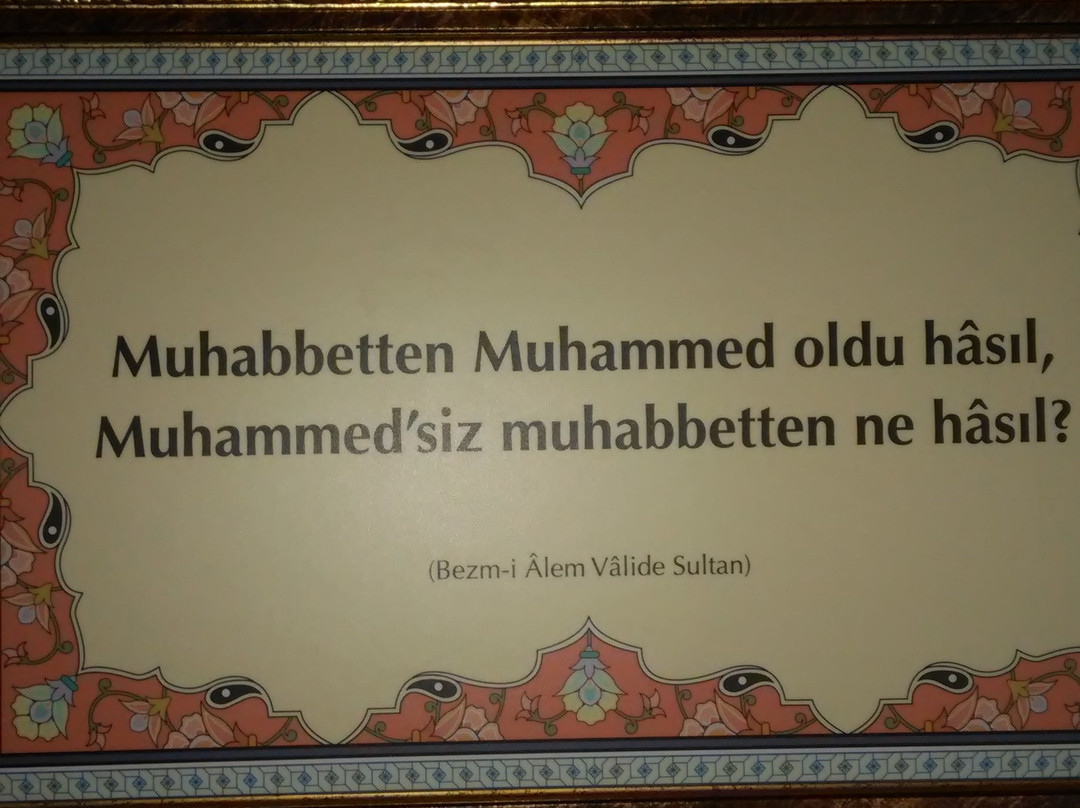 Muhabbetten Muhammed oldu hâsıl,
Muhammed'siz muhabbetten ne hâsıl?
(Bezm-i Âlem Vâlide Sultan)